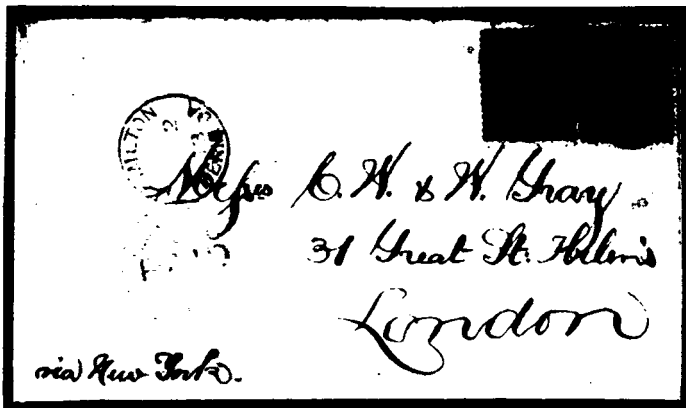 Messrs C. W. & W. Gray
31 Great St. Helen's
London
via New York.